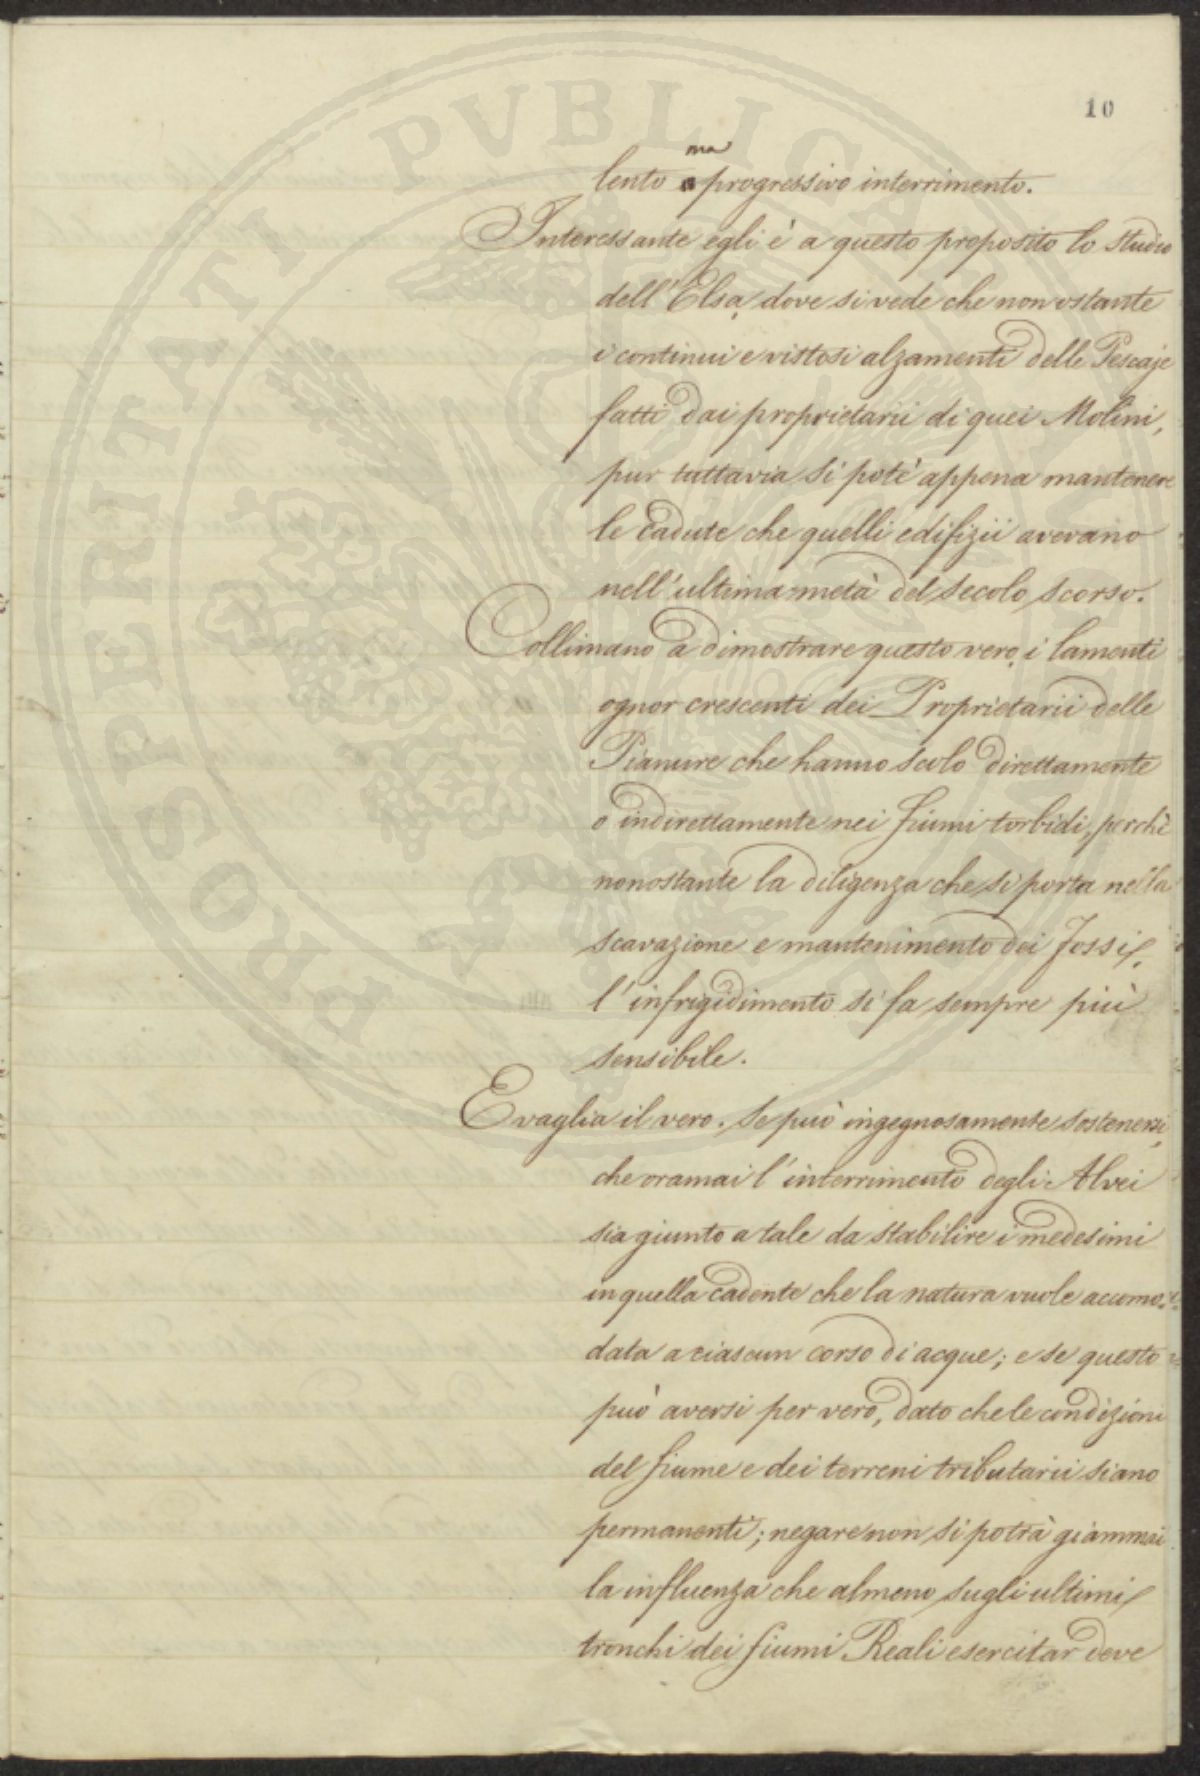 10
lento ma progressivo interrimento.
Interessante egli è a questo proposito lo studio
dell'Elsa, dove si vede che non ostante
i continui e vistosi alzamenti delle Pescaje
fatti dai proprietarii di quei Molini,
pur tuttavia si potè appena mantenere
le cadute che quelli edifizii avevano
nell'ultima metà del secolo scorso.
Collimano a dimostrare questo vero, i lamenti
ognor crescenti dei Proprietarii delle
Pianure che hanno scolo direttamente
o indirettamente nei fiumi torbidi, perchè
nonostante la diligenza che si porta nella
scavazione e mantenimento dei Fossi,
l'infrigidimento si fa sempre più
sensibile.
E vaglia il vero. Se può ingegnosamente sostenersi,
che oramai l'interrimento degli Alvei
sia giunto a tale da stabilire i medesimi
in quella cadente che la natura vuole accomo=
data a ciascun corso di acque; e se questo
può aversi per vero, dato che le condizioni
del fiume e dei terreni tributarii siano
permanenti; negare non si potrà giammai
la influenza che almeno sugli ultimi
tronchi dei fiumi Reali esercitar deve
PROSPERITATI PVBLICAE